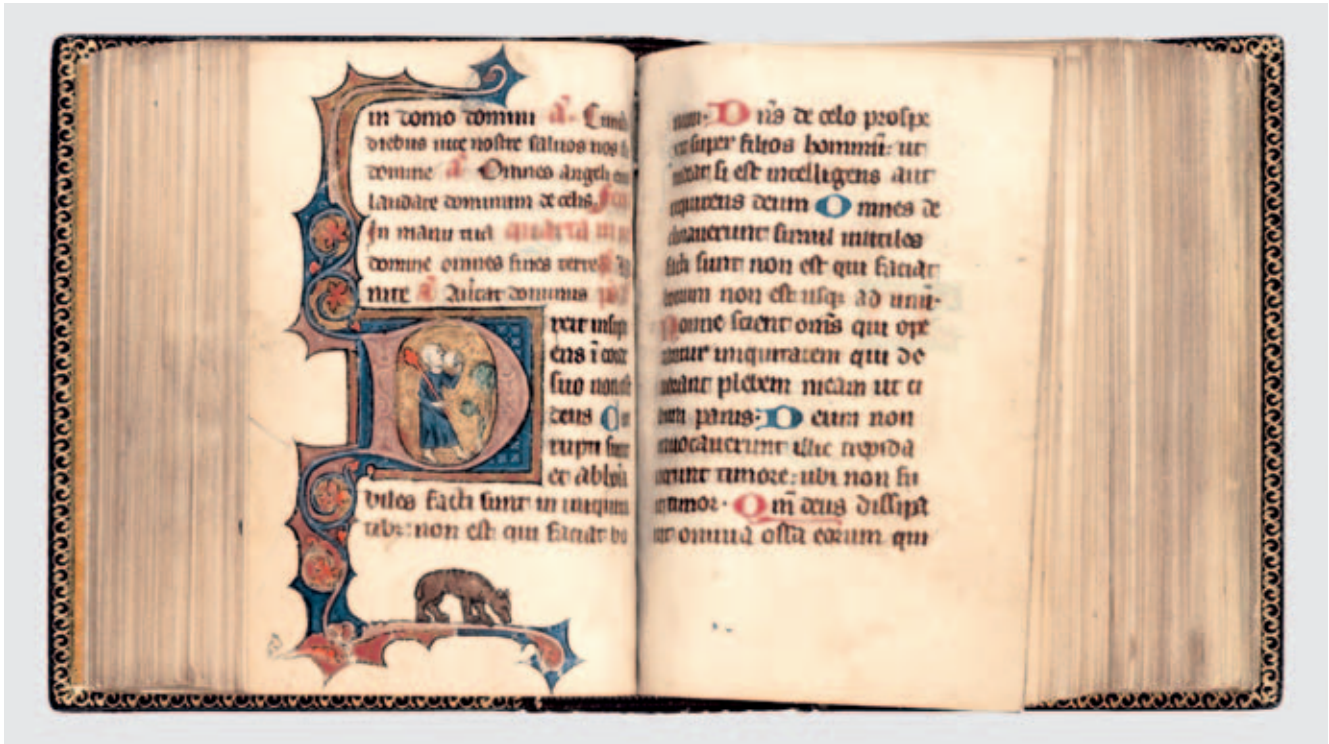 in domo domini a̅.
diebus vite nostre saluos nos
domine a̅ Omnes angeli
laudate dominum de celis
In manu tua quarta
domine omnes fines terre
nite a̅ Auertat dominus
D ixit insipi
ens ī corde
suo non est
deus Cor
rupti sunt
et abhōi
biles facti sunt in iniquita
tibꝫ: non est qui faciat bo
num. Dn̅s de celo prospe
xit super filios hominū: ut
uideat si est intelligens aut
requirens deum Omnes de
clinauerunt simul inutiles
facti sunt non est qui faciat
bonum non est usqꝫ ad unū.
Nonne scient om̅s qui ope
rantur iniquitatem qui de
uorant plebem meam ut ci
bum panis: Deum non
inuocauerunt illic trepida
uerunt timore: ubi non fu
it timor. Qm̅ deus dissipa
uit omnia ossa eorum qui